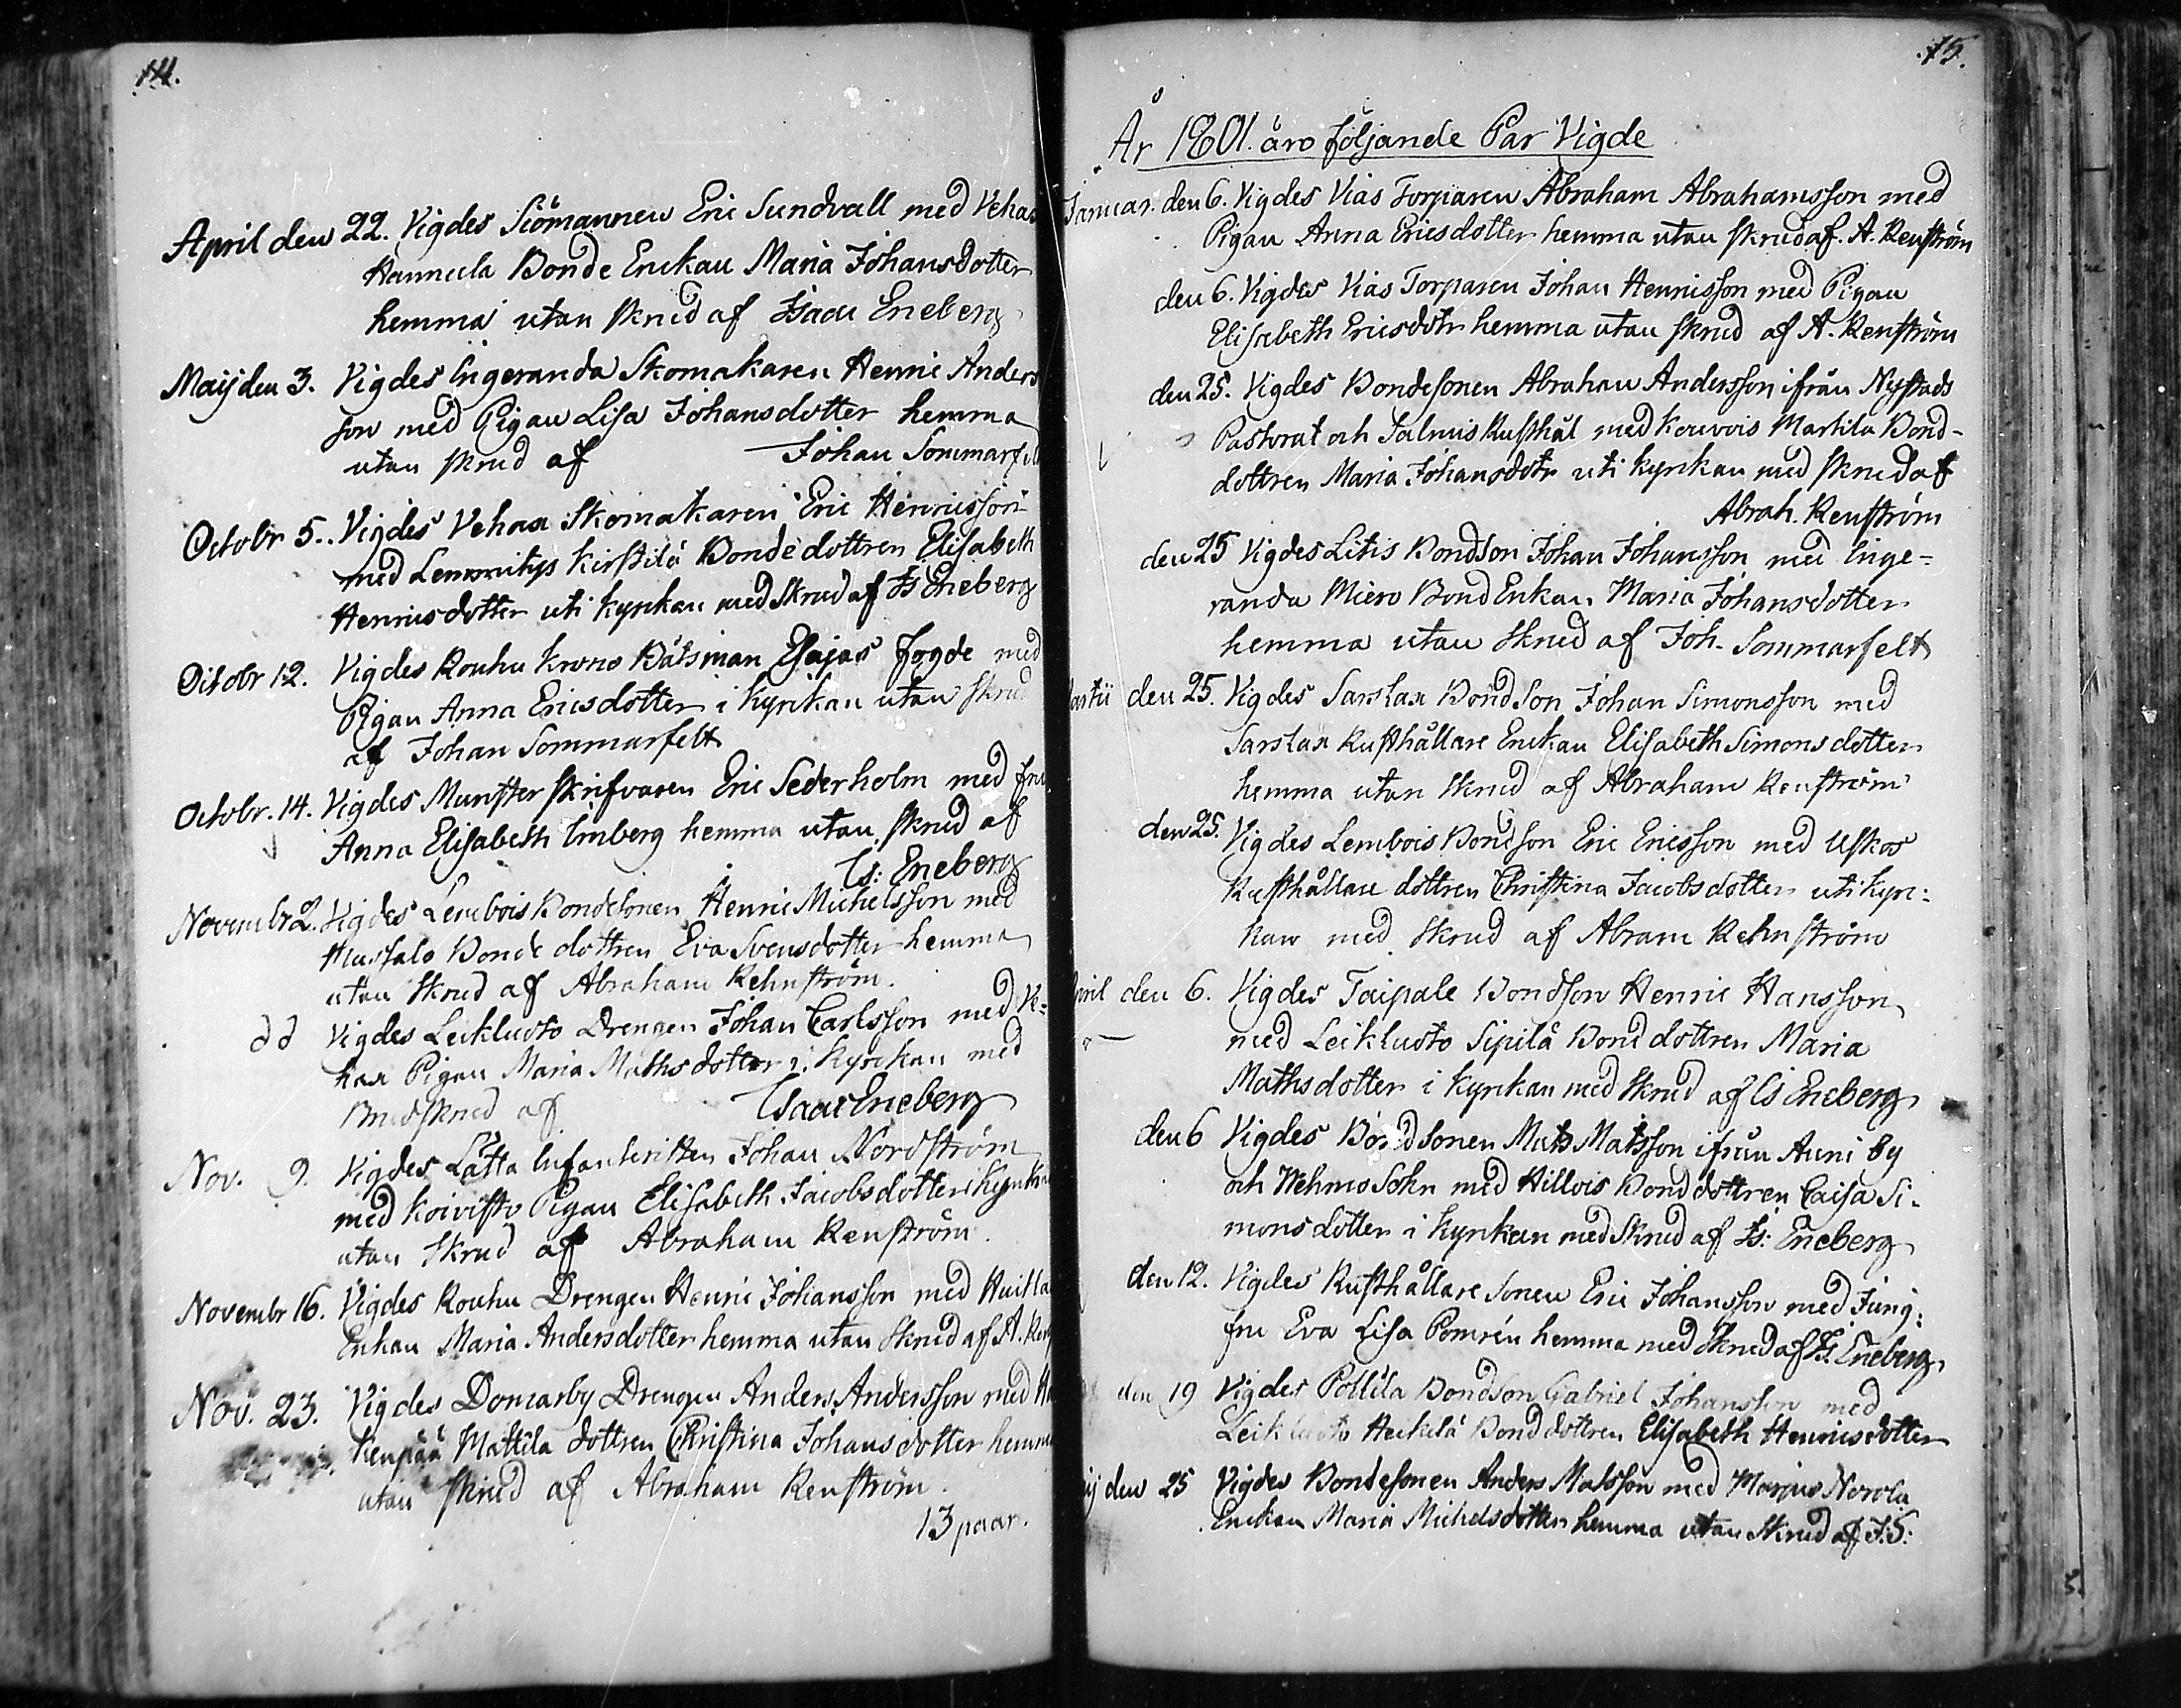 14.
April den 22. Vigdes Siömannen Eric Sundvall med Vehax
Hannula Bonde Enckan Maria Johansdotter
hemma utan skrud af Isaac Eneberg
Maij den 3. Vigdes Ingeranda Skomakaren Henric Anders
son med Pigan Lisa Johansdotter hemma
utan skrud af Johan Sommarfelt
Octobr 5. Vigdes Vehax Skomakaren Eric Henricsson
med Lemmitys Kirstilä Bondedottren Elisabeth
Henricsdotter uti kyrkan med Skrud af Is Eneberg
Octobr 12. Vigdes Rouhu krono Båtsman Esajas Fogde med
Pigan Anna Ericsdotter i kyrkan utan skrud
af Johan Sommarfelt
Octobr. 14. Vigdes Munster skrifvaren Eric Sederholm med fru
Anna Elisabeth Imberg hemma utan skrud af
Is: Eneberg
Novembr 2. Vigdes Lembois Bondesonen Henric Michelsson med
Hussalo Bonde dottren Eva Svensdotter hemma
utan Skrud af Abraham Rehnström.
dd Vigdes Leikluoto Drengen Johan Carlsson med Ve-
hax Pigan Maria Mathsdotter i Kyrckan med
Brudskrud af Isaac Eneberg
Nov. 9. Vigdes Lätta Infanteristen Johan Nordström
med Koivisto Pigan Elisabeth Jacobsdotter i Kyrkan
utan Skrud af Abraham Renström.
Novembr 16. Vigdes Rouhu Drengen Henric Johansson med
Enkan Maria Andersdotter hemma utan Skrud af A.
Nov. 23. Vigdes Domarby Drengen Anders Andersson med
kenpää Mattila dottren Christina Johansdotter hemma
utan skrud af Abraham Renström.
13 paar.
15.
År 1801. äro följande Par Vigde
Januar. den 6. Vigdes Vias Torparen Abraham Abrahamsson med
Pigan Anna Ericsdotter hemma utan skrud af. A. Renström
den 6. Vigdes Vias Torparen Johan Henricsson med Pigan
Elisabeth Ericsdotr hemma utan skrud af A. Renström
den 25. Vigdes Bondesonen Abraham Andersson ifrån Nystads
Pastorat och Salmis Rusthål med Kouvois Markila Bond-
dottren Maria Johansdotr uti kyrkan med skrud af
Abrah. Renström
den 25 Vigdes Litis Bondson Johan Johansson med Inge-
randa Miero Bond Enkan Maria Johansdotter
hemma utan Skrud af Joh. Sommarfelt
artii den 25. Vigdes Sarsax Bondson Johan Simonsson med
Sarsax Rusthållare Enckan Elisabeth Simonsdotter
hemma utan Skrud af Abraham Renström
den 25. Vigdes Lembois Bondson Eric Ericsson med Uskos
Rusthållare dottren Christina Jacobsdotter uti kyr:
kan med Skrud af Abram Rehnström
April den 6. Vigdes Taipale Bondson Henric Hansson
med Leikluoto Sipilä Bond dottren Maria
Mathsdotter i kyrkan med Skrud af Is Eneberg
den 6 Vigdes Bondsonen Mats Matsson ifrån Auni by
och Wehmo Sokn med Hillois Bonddottren Caisa Si-
monsdotter i kyrkan med Skrud af Is: Eneberg
den 12. Vigdes Rusthållare Sonen Eric Johansson med Jung:
fru Eva Lisa Pomrén hemma med Skrud af Is. Eneberg
den 19 Vigdes Pottila Bondson Gabriel Johansson med
Leikluoto Heikilä Bonddottren Elisabeth Henricsdotter
ij den 25 Vigdes Bondesonen Anders Matsson med Marjus Norola
Enckan Maria Michelsdotter hemma utan Skrud af J:S: